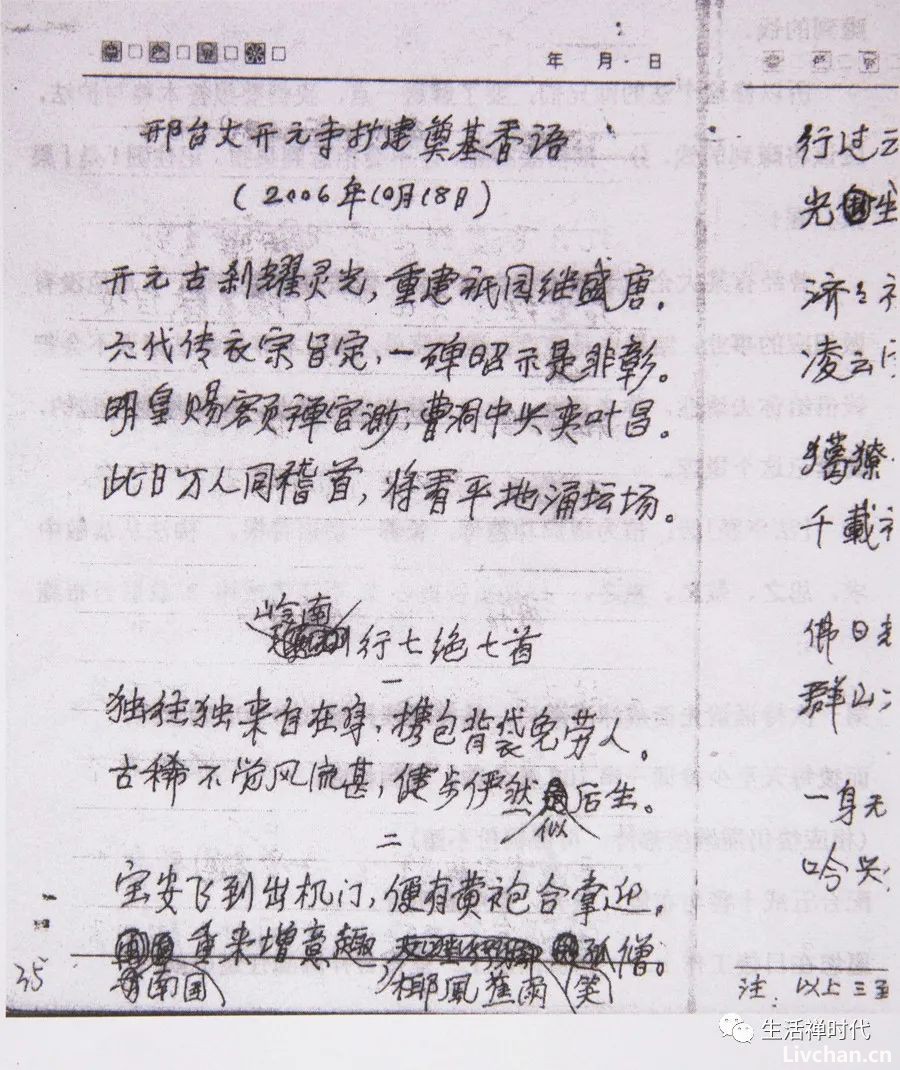 年 月 日
邢台大开元寺抄建奠基香语
(2006年10月18日)
开元古刹耀灵光，重建祇园继盛唐。
六代传衣宗旨定，一碑昭示是非彰。
明皇赐额禅宫渺，曹洞中兴奕叶昌。
此日万人同稽首，将看平地涌坛场。
岭南
行七绝七首
一
独往独来自在身，携包背袋免劳人。
古稀不觉风流甚，健步俨然后生。
似
二
宝安飞到出机门，便有黄袍合掌迎。
重来增意趣 孤僧。
南国 椰風蕉雨 笑
35
行过云
光
济々
凌云
獦獠
千載
佛日
群山
一身无
哈哈
注：以上三至
生活禅时代
Livchan.cn